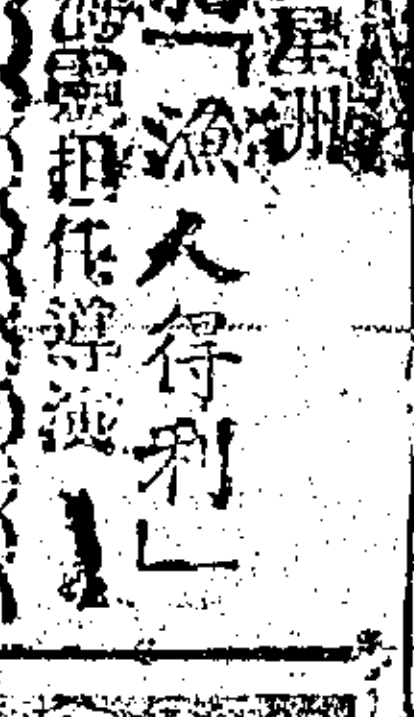 星洲
「漁人得利」
担任導演